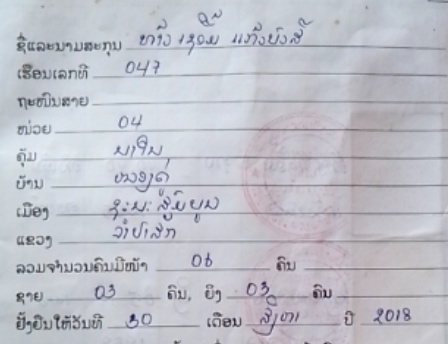 ຊື່ແລະນາມສະກຸນ ທ້າວ
ເຮືອນເລກທີ 047
ຖະໜົນສາຍ
ໜ່ວຍ 04
ຄຸ້ມ
ບ້ານ
ເມືອງ ຊະນະສົມບູນ
ແຂວງ ຈຳປາສັກ
ລວມຈຳນວນຄົນມີໜ້າ 06 ຄົນ
ຊາຍ 03 ຄົນ, ຍິງ 03 ຄົນ
ຢັ້ງຢືນໃຫ້ວັນທີ 30 ເດືອນ ສິງຫາ ປີ 2018